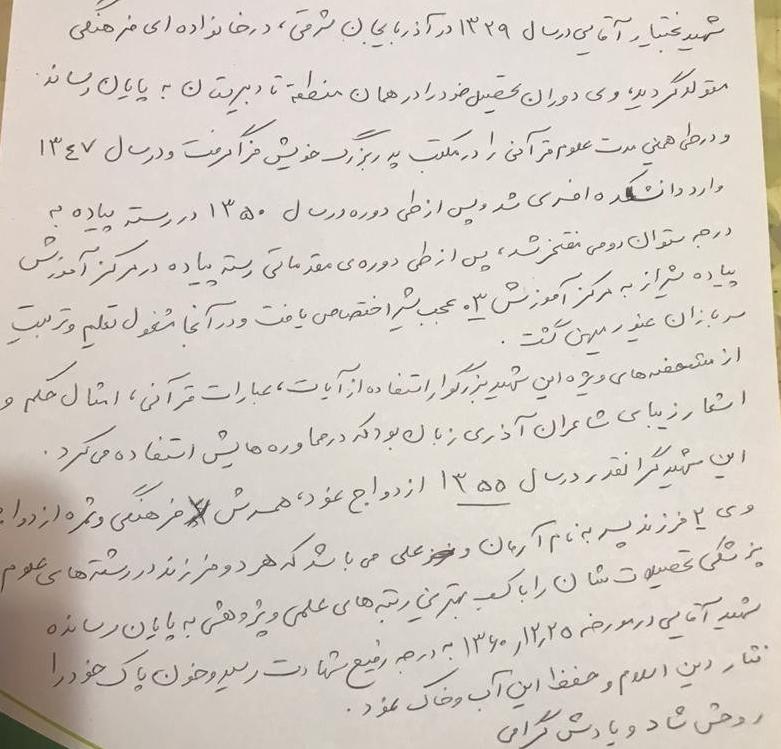 شهید بختیار آقایی درسال ۱۳۲۹ در آذربایجان شرقی، درخانواده ای فرهنگی
متولد گردید، وی دوران تحصیل خود را در همان منطقه تا دبیرستان به پایان رساند.
و درطی همین مدت علوم قرآنی را در مکتب پدربزرگ خویش فراگرفت و درسال ۱۳۴۷
وارد دانشکده افسری شد و پس از طی دوره درسال ۱۳۵۰ در رسته پیاده به
درجه ستوان دومی مفتخر شد، پس از طی دوره‌ی مقدماتی رسته پیاده در مرکز آموزش
پیاده شیراز به مرکز آموزش ۰۳ عجب شیر اختصاص یافت و در آنجا مشغول تعلیم و تربیت
سربازان غیور میهن گشت.
از مشخصه های ویژه این شهید بزرگوار استفاده از آیات، عبارات قرآنی، امثال حکم و
اشعار زیبای شاعران آذری زبان بود که درمحاوره هایش استفاده می کرد.
این شهید گرانقدر درسال ۱۳۵۵ ازدواج نمود، همسرش فرهنگی و ثمره ازدواج
وی ۲ فرزند پسر به نام آرمان و علی می باشد که هر دو فرزند در رشته های علوم
پزشکی تحصیلات شان را با کسب بهترین رتبه های علمی و پژوهشی به پایان رسانده
شهید آقایی در مورخه ۱۳۶۰,۱۲,۲۵ به درجه رفیع شهادت رسید و خون پاک خود را
نثار دین اسلام و حفظ این آب و خاک نمود.
روحش شاد و یادش گرامی